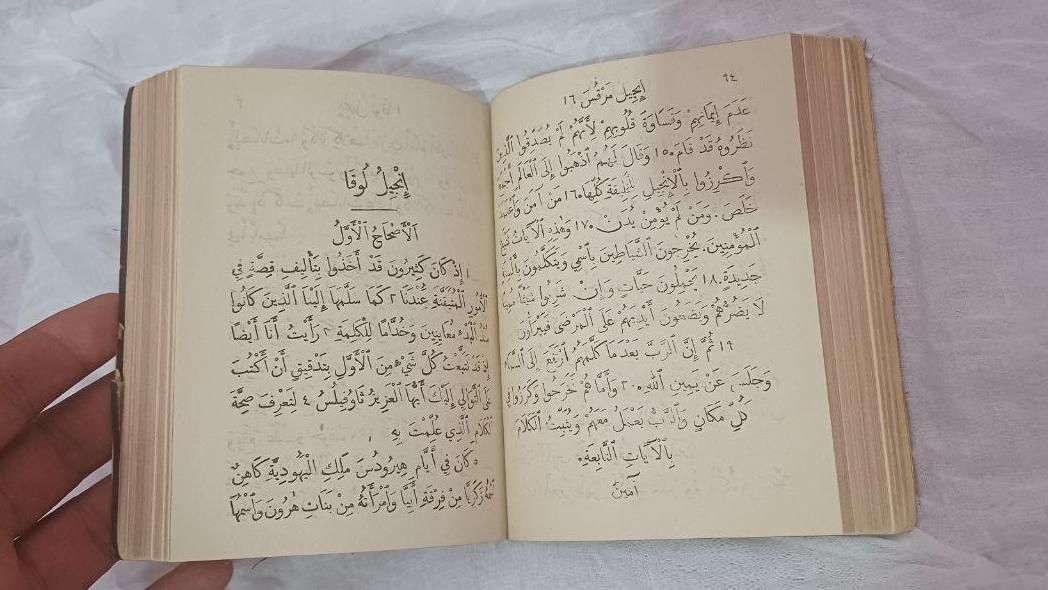 ٩٤
إِنْجِيل مَرْقُسَ ١٦
عَدَمَ إِيمَانِهِمْ وَقَسَاوَةَ قُلُوبِهِمْ لِأَنَّهُمْ لَمْ يُصَدِّقُوا ٱلَّذِينَ
نَظَرُوهُ قَدْ قَامَ ٠ ١٥ وَقَالَ لَهُمُ ٱذْهَبُوا إِلَى ٱلْعَالَمِ أَجْمَعَ
وَٱكْرِزُوا بِٱلْإِنْجِيلِ لِلْخَلِيقَةِ كُلِّهَا ٠ ١٦ مَنْ آمَنَ وَٱعْتَمَدَ
خَلَصَ ٠ وَمَنْ لَمْ يُؤْمِنْ يُدَنْ ٠ ١٧ وَهٰذِهِ ٱلْآيَاتُ تَتْبَعُ
ٱلْمُؤْمِنِينَ ٠ يُخْرِجُونَ ٱلشَّيَاطِينَ بِٱسْمِي وَيَتَكَلَّمُونَ بِأَلْسِنَةٍ
جَدِيدَةٍ ٠ ١٨ يَحْمِلُونَ حَيَّاتٍ وَإِنْ شَرِبُوا شَيْئًا مُمِيتًا
لَا يَضُرُّهُمْ وَيَضَعُونَ أَيْدِيَهُمْ عَلَى ٱلْمَرْضَى فَيَبْرَأُونَ
١٩ ثُمَّ إِنَّ ٱلرَّبَّ بَعْدَمَا كَلَّمَهُمُ ٱرْتَفَعَ إِلَى ٱلسَّمَاءِ
وَجَلَسَ عَنْ يَمِينِ ٱللهِ ٠ ٢٠ وَأَمَّا هُمْ فَخَرَجُوا وَكَرَزُوا فِي
كُلِّ مَكَانٍ وَٱلرَّبُّ يَعْمَلُ مَعَهُمْ وَيُثَبِّتُ ٱلْكَلَامَ
بِٱلْآيَاتِ ٱلتَّابِعَةِ ٠
آمِينَ
إِنْجِيلُ لُوقَا
اَلْأَصْحَاحُ ٱلْأَوَّلُ
١ إِذْ كَانَ كَثِيرُونَ قَدْ أَخَذُوا بِتَأْلِيفِ قِصَّةٍ فِي
ٱلْأُمُورِ ٱلْمُتَيَقَّنَةِ عِنْدَنَا ٢ كَمَا سَلَّمَهَا إِلَيْنَا ٱلَّذِينَ كَانُوا
مُنْذُ ٱلْبَدْءِ مُعَايِنِينَ وَخُدَّامًا لِلْكَلِمَةِ ٣ رَأَيْتُ أَنَا أَيْضًا
إِذْ قَدْ تَتَبَّعْتُ كُلَّ شَيْءٍ مِنَ ٱلْأَوَّلِ بِتَدْقِيقٍ أَنْ أَكْتُبَ
عَلَى ٱلتَّوَالِي إِلَيْكَ أَيُّهَا ٱلْعَزِيزُ ثَاوُفِيلُسُ ٤ لِتَعْرِفَ صِحَّةَ
ٱلْكَلَامِ ٱلَّذِي عُلِّمْتَ بِهِ
٥ كَانَ فِي أَيَّامِ هِيرُودُسَ مَلِكِ ٱلْيَهُودِيَّةِ كَاهِنٌ
ٱسْمُهُ زَكَرِيَّا مِنْ فِرْقَةِ أَبِيَّا وَٱمْرَأَتُهُ مِنْ بَنَاتِ هٰرُونَ وَٱسْمُهَا